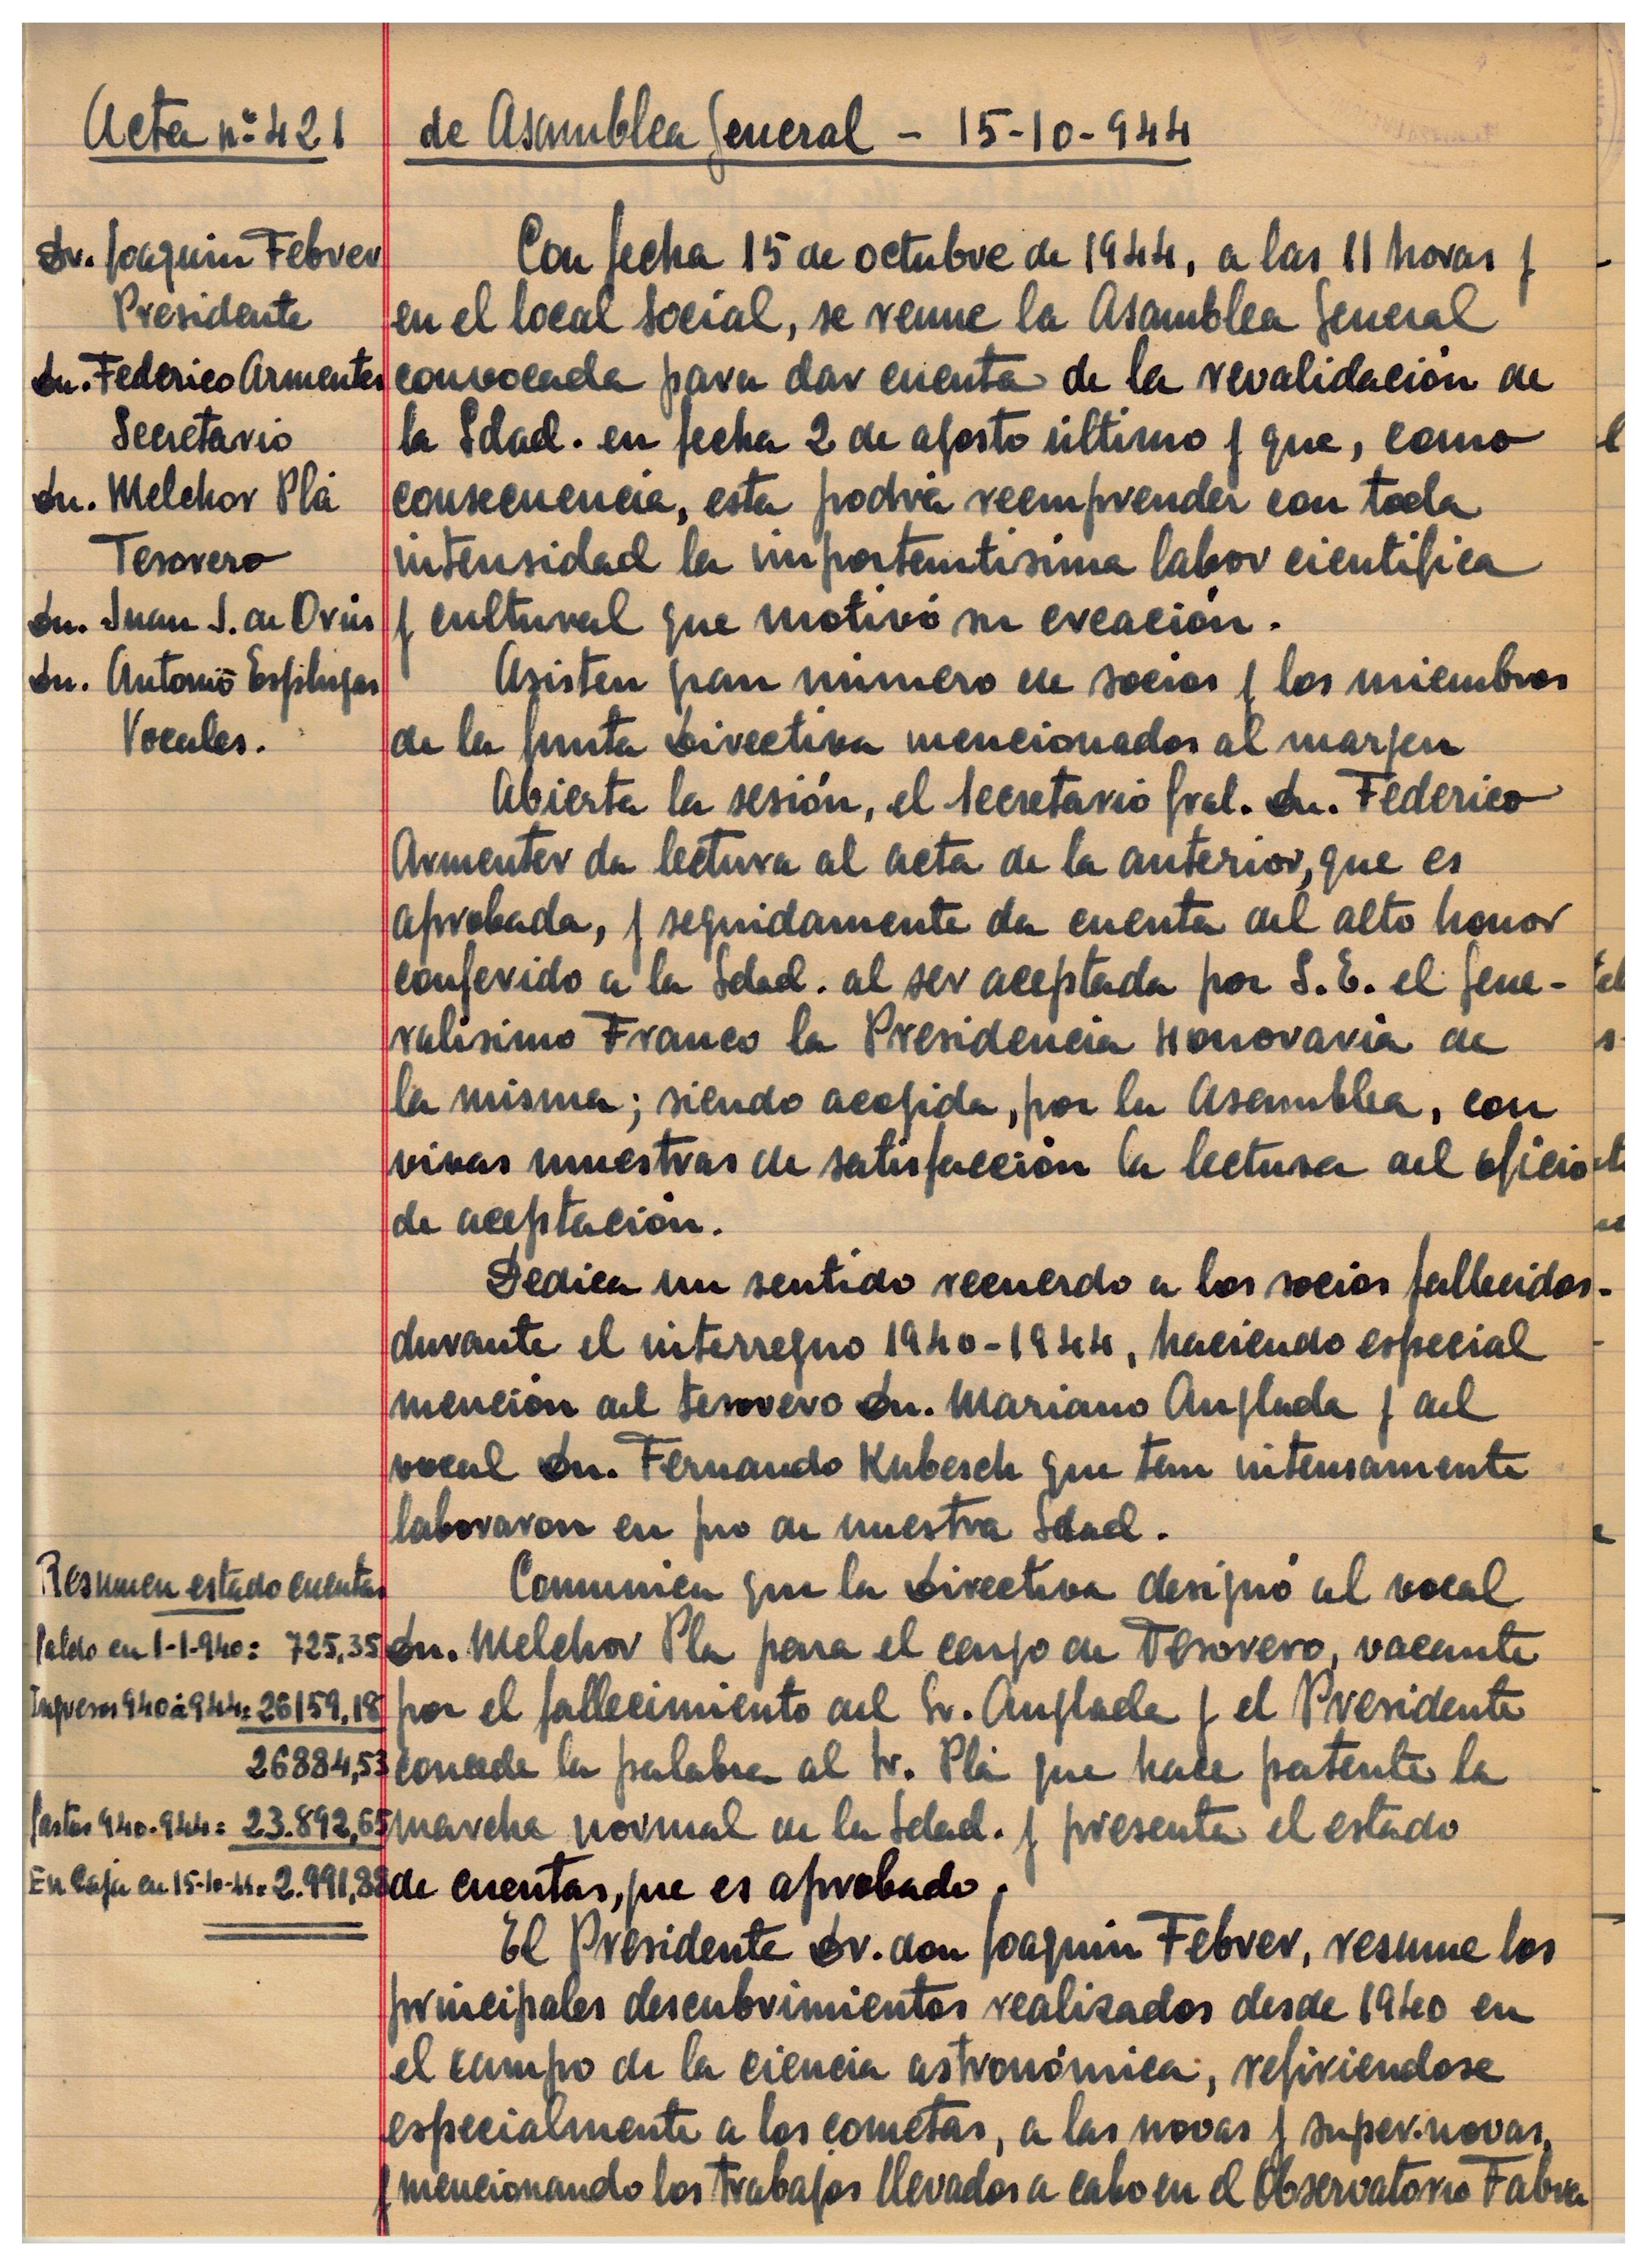 Acta nº 421 de Asamblea General - 15-10-944
Dr. Joaquin Febrer
Presidente
Dn. Federico Armenter
Secretario
Dn. Melchor Plá
Tesorero
Dn. Juan J. de Orús
Dn. Antonio Esplugas
Vocales.
Con fecha 15 de octubre de 1944, a las 11 horas y
en el local social, se reune la Asamblea General
convocada para dar cuenta de la revalidación de
la Sdad. en fecha 2 de agosto último y que, como
consecuencia, esta podria reemprender con toda
intensidad la importantisima labor cientifica
y cultural que motivó su creación.
Asisten gran número de socios y los miembros
de la Junta Directiva mencionados al margen
Abierta la sesión, el Secretario Gral. Dn. Federico
Armenter da lectura al acta de la anterior, que es
aprobada, y seguidamente da cuenta del alto honor
conferido a la Sdad. al ser aceptada por S.E. el Gene-
ralisimo Franco la Presidencia Honoraria de
la misma; siendo acogida, por la Asamblea, con
vivas muestras de satisfacción la lectura del oficio
de aceptación.
Dedica un sentido recuerdo a los socios fallecidos
durante el interregno 1940-1944, haciendo especial
mención del tesorero Dn. Mariano Anglada y del
vocal Dn. Fernando Kubesch que tan intensamente
laboraron en pro de nuestra Sdad.
Resumen estado cuentas
Saldo en 1-1-940= 725,35
Ingresos 940 á 944= 26159,18
26884,53
Gastos 940-944= 23.892,65
En Caja en 15-10-44= 2.991,88
Comunica que la Directiva designó al vocal
Dn. Melchor Pla para el cargo de Tesorero, vacante
por el fallecimiento del Sr. Anglada y el Presidente
concede la palabra al Sr. Plá que hace patente la
marcha normal de la Sdad. y presenta el estado
de cuentas, que es aprobado.
El Presidente Dr. don Joaquin Febrer, resume los
principales descubrimientos realizados desde 1940 en
el campo de la ciencia astronómica, refiriendose
especialmente a los cometas, a las novas y super-novas,
y mencionando los trabajos llevados a cabo en el Observatorio Fabra